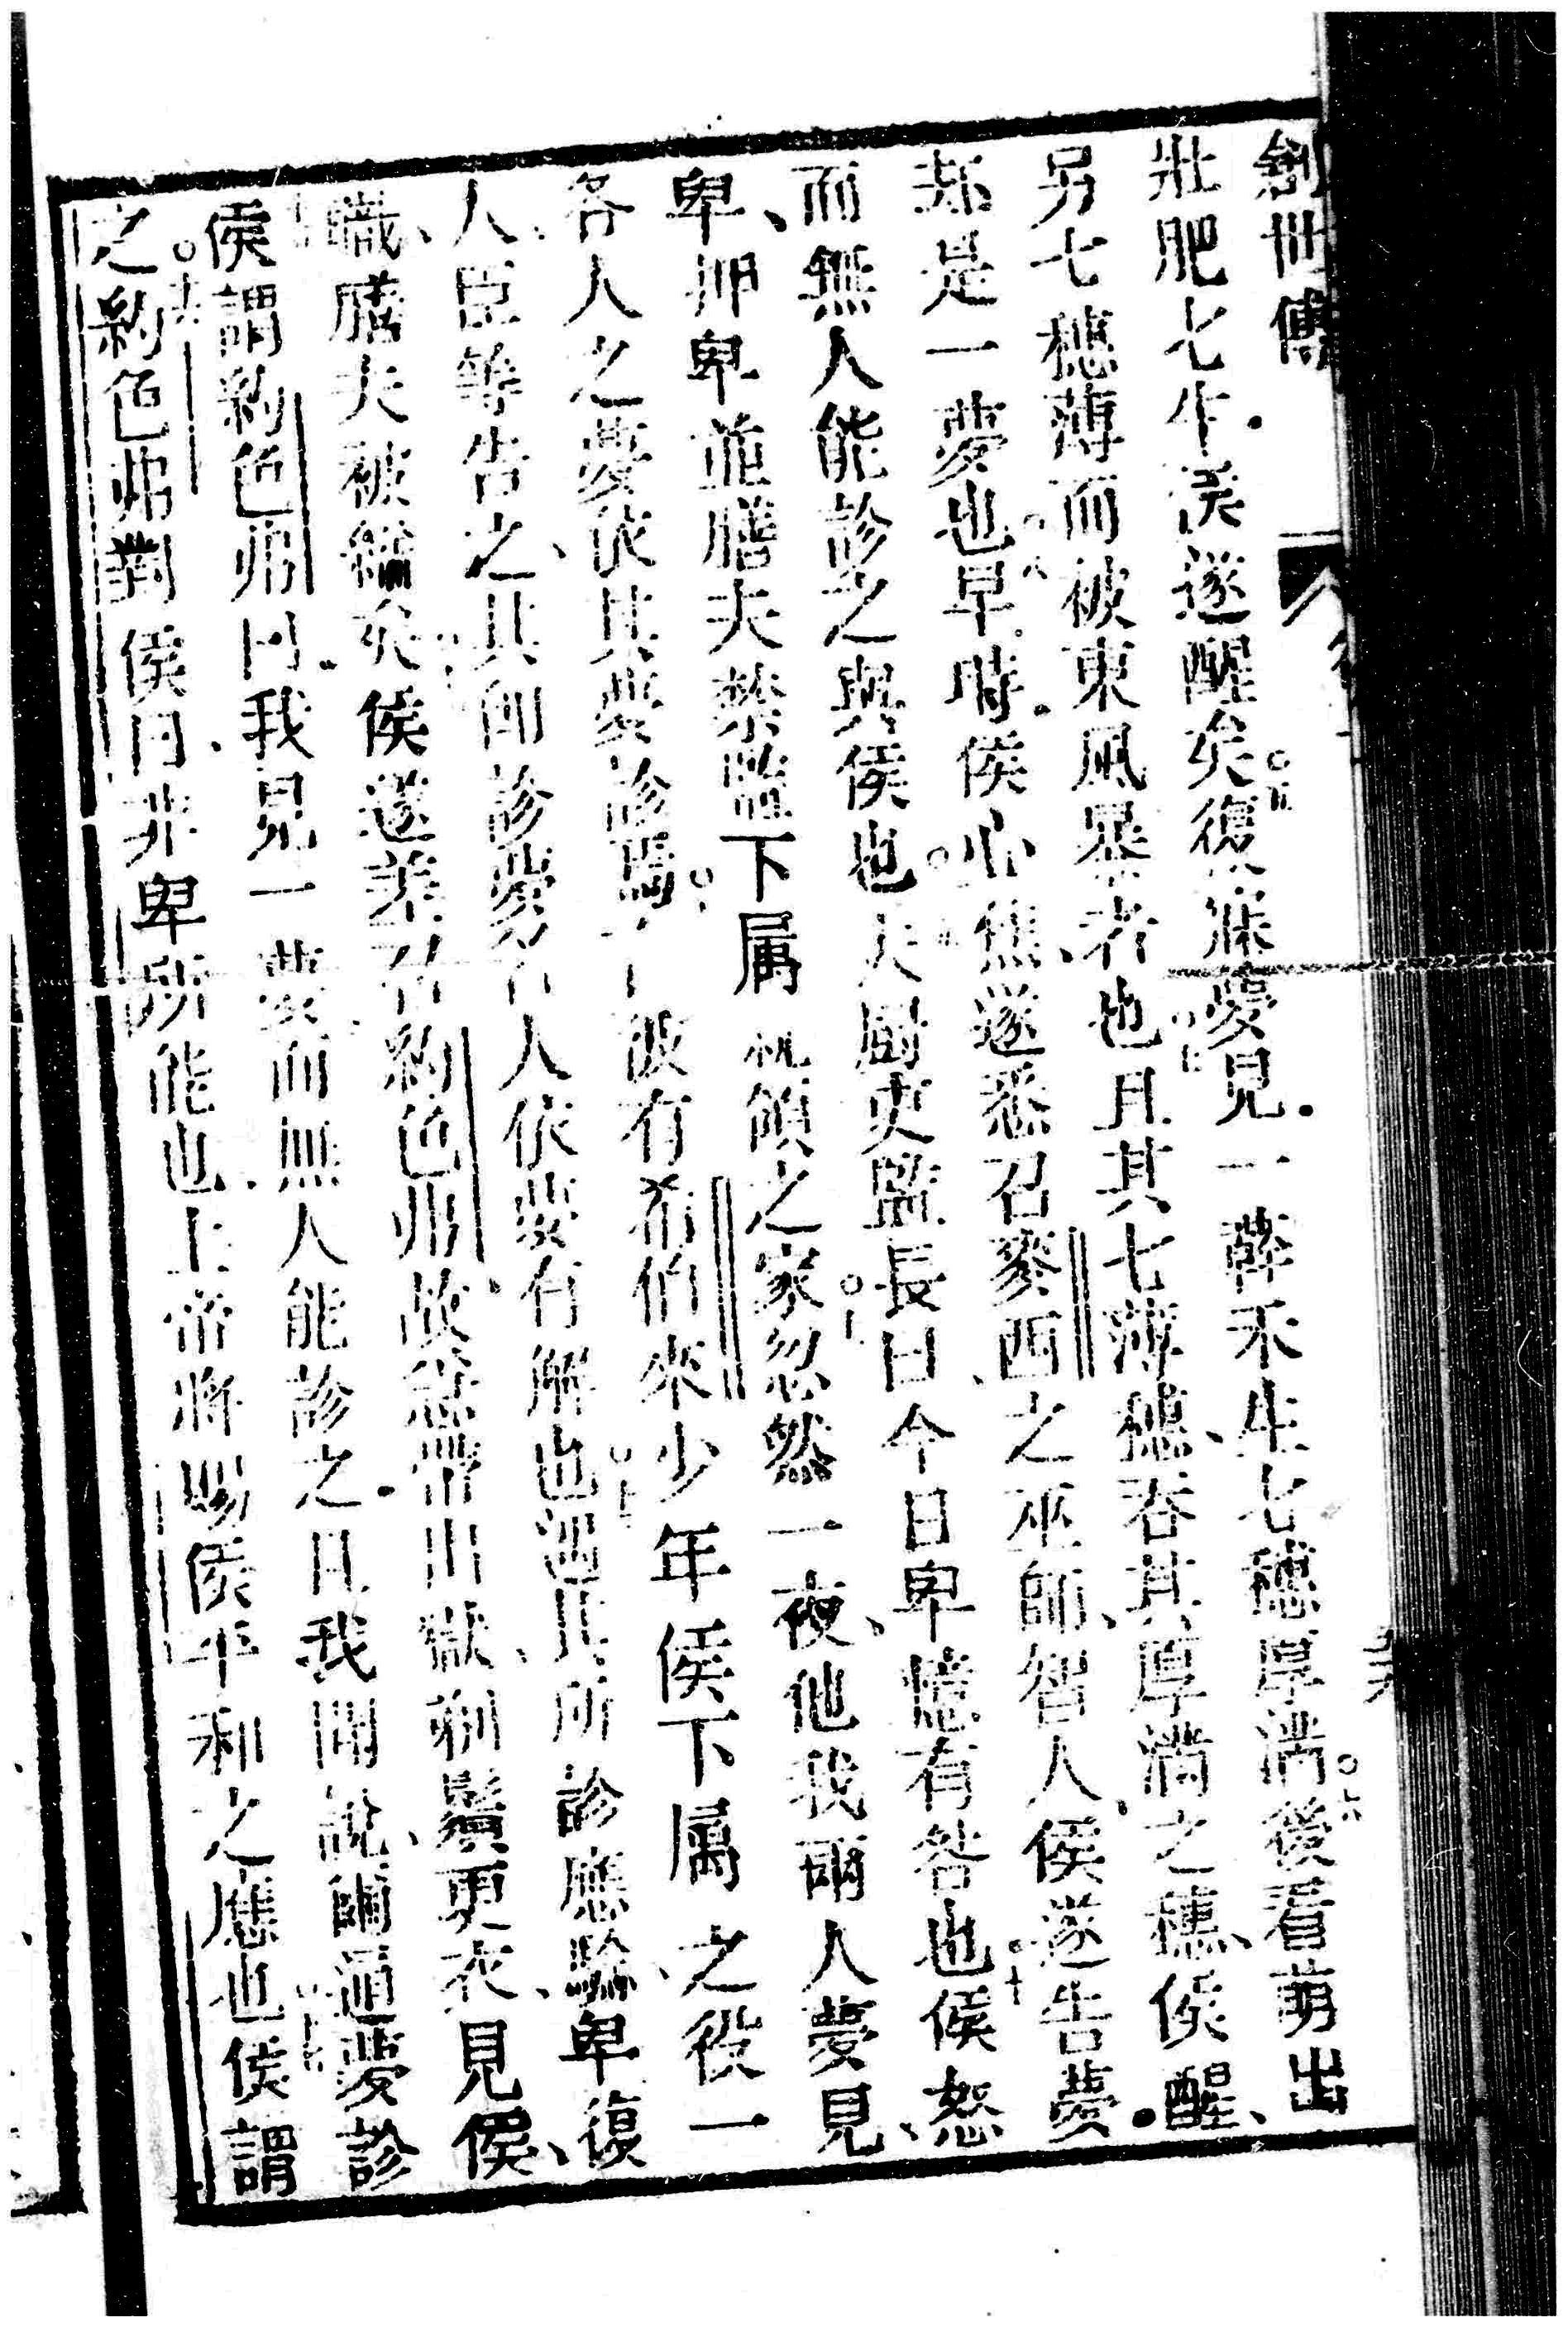 創世傳
壯肥七牛侯遂醒矣。五復寐夢見一莖禾生七穗厚滿。六後看萌出
另七穗薄而被東風暴者也。七且其七薄穗吞其厚滿之穗侯醒
却是一夢也。八早時侯心焦遂悉召麥西之巫師智人侯遂告夢
而無人能診之與侯也。九大厨吏監長曰今日卑憶有咎也。十侯怒
卑押卑並膳夫禁監下属 領之家。忽然一夜他我兩人夢見
各人之夢依其夢診焉。彼有希伯來少年侯下属 之役一
人臣等告之其即診夢各人依夢有解也。遇其所診應驗卑復
職膳夫被縊矣侯遂差召約色弗故急帶出獄剃鬚更衣見侯
侯謂約色弗曰我見一夢而無人能診之且我聞說爾通夢診
之。約色弗對侯曰非卑所能也上帝將賜侯平和之應也。侯謂